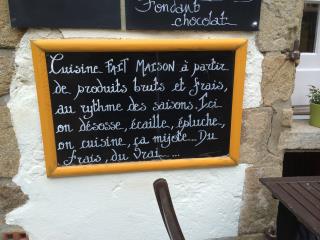 Fondant
chocolat
Cuisine FAIT MAISON à partir
de produits bruts et frais,
au rythme des saisons. Ici
on désosse, écaille, épluche,
on cuisine, ça mijote... Du
frais, du vrai.....